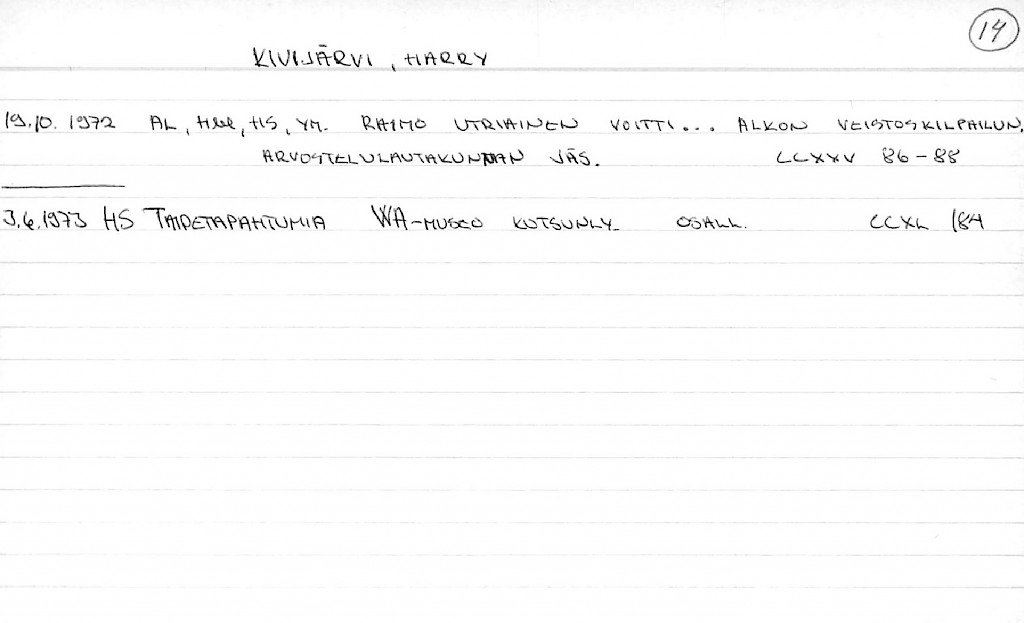 14
KIVIJÄRVI, HARRY
19.10. 1972 AL, Hbl, HS, YM. RAIMO UTRIAINEN VOITTI... ALKON VEISTOSKILPAILUN.
ARVOSTELULAUTAKUNNAN JÄS. CCXXV 86-88
3.6.1973 HS TAIDETAPAHTUMIA WA-MUSEO KUTSUNÄY. OSALL. CCXL 184